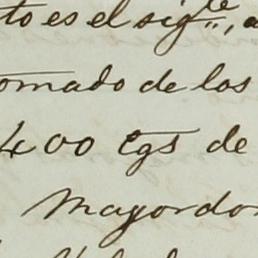 to es el sigte, a
omado de los
400 Egs de
Mayordom